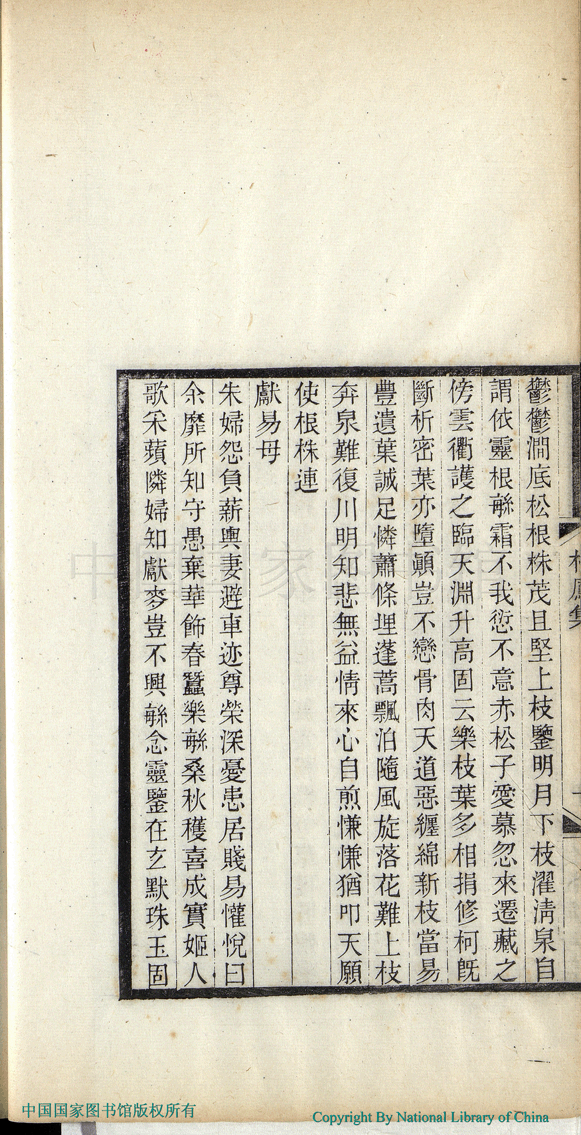 鬱鬱澗底松根株茂且堅上枝鑒明月下枝濯淸泉自
謂依靈根緐霜不我愆不意赤松子愛慕忽來遷藏之
傍雲衢護之臨天淵升高固云樂枝葉多相捐修柯旣
斷析密葉亦墮顚豈不戀骨肉天道惡纏綿新枝當易
豊遺葉誠足憐蕭條埋蓬蒿飄泊隨風旋落花難上枝
奔泉難復川明知悲無益情來心自煎慊慊猶叩天願
使根株連
獻易母
朱婦怨負薪輿妻避車迹尊榮深憂患居賤易懽悅曰
余靡所知守愚棄華飾春蠶樂緐桑秋穫喜成實姬人
歌采蘋隣婦知獻麥豈不興緐念靈鑒在玄默珠玉固
中国国家图书馆版权所有
Copyright By National Library of China